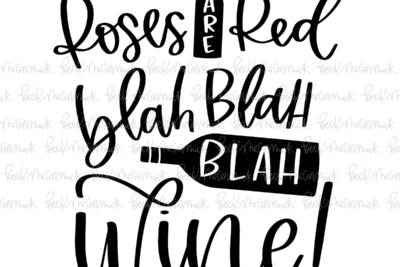 Roses ARE Red
blah Blah
BLAH
Wine!